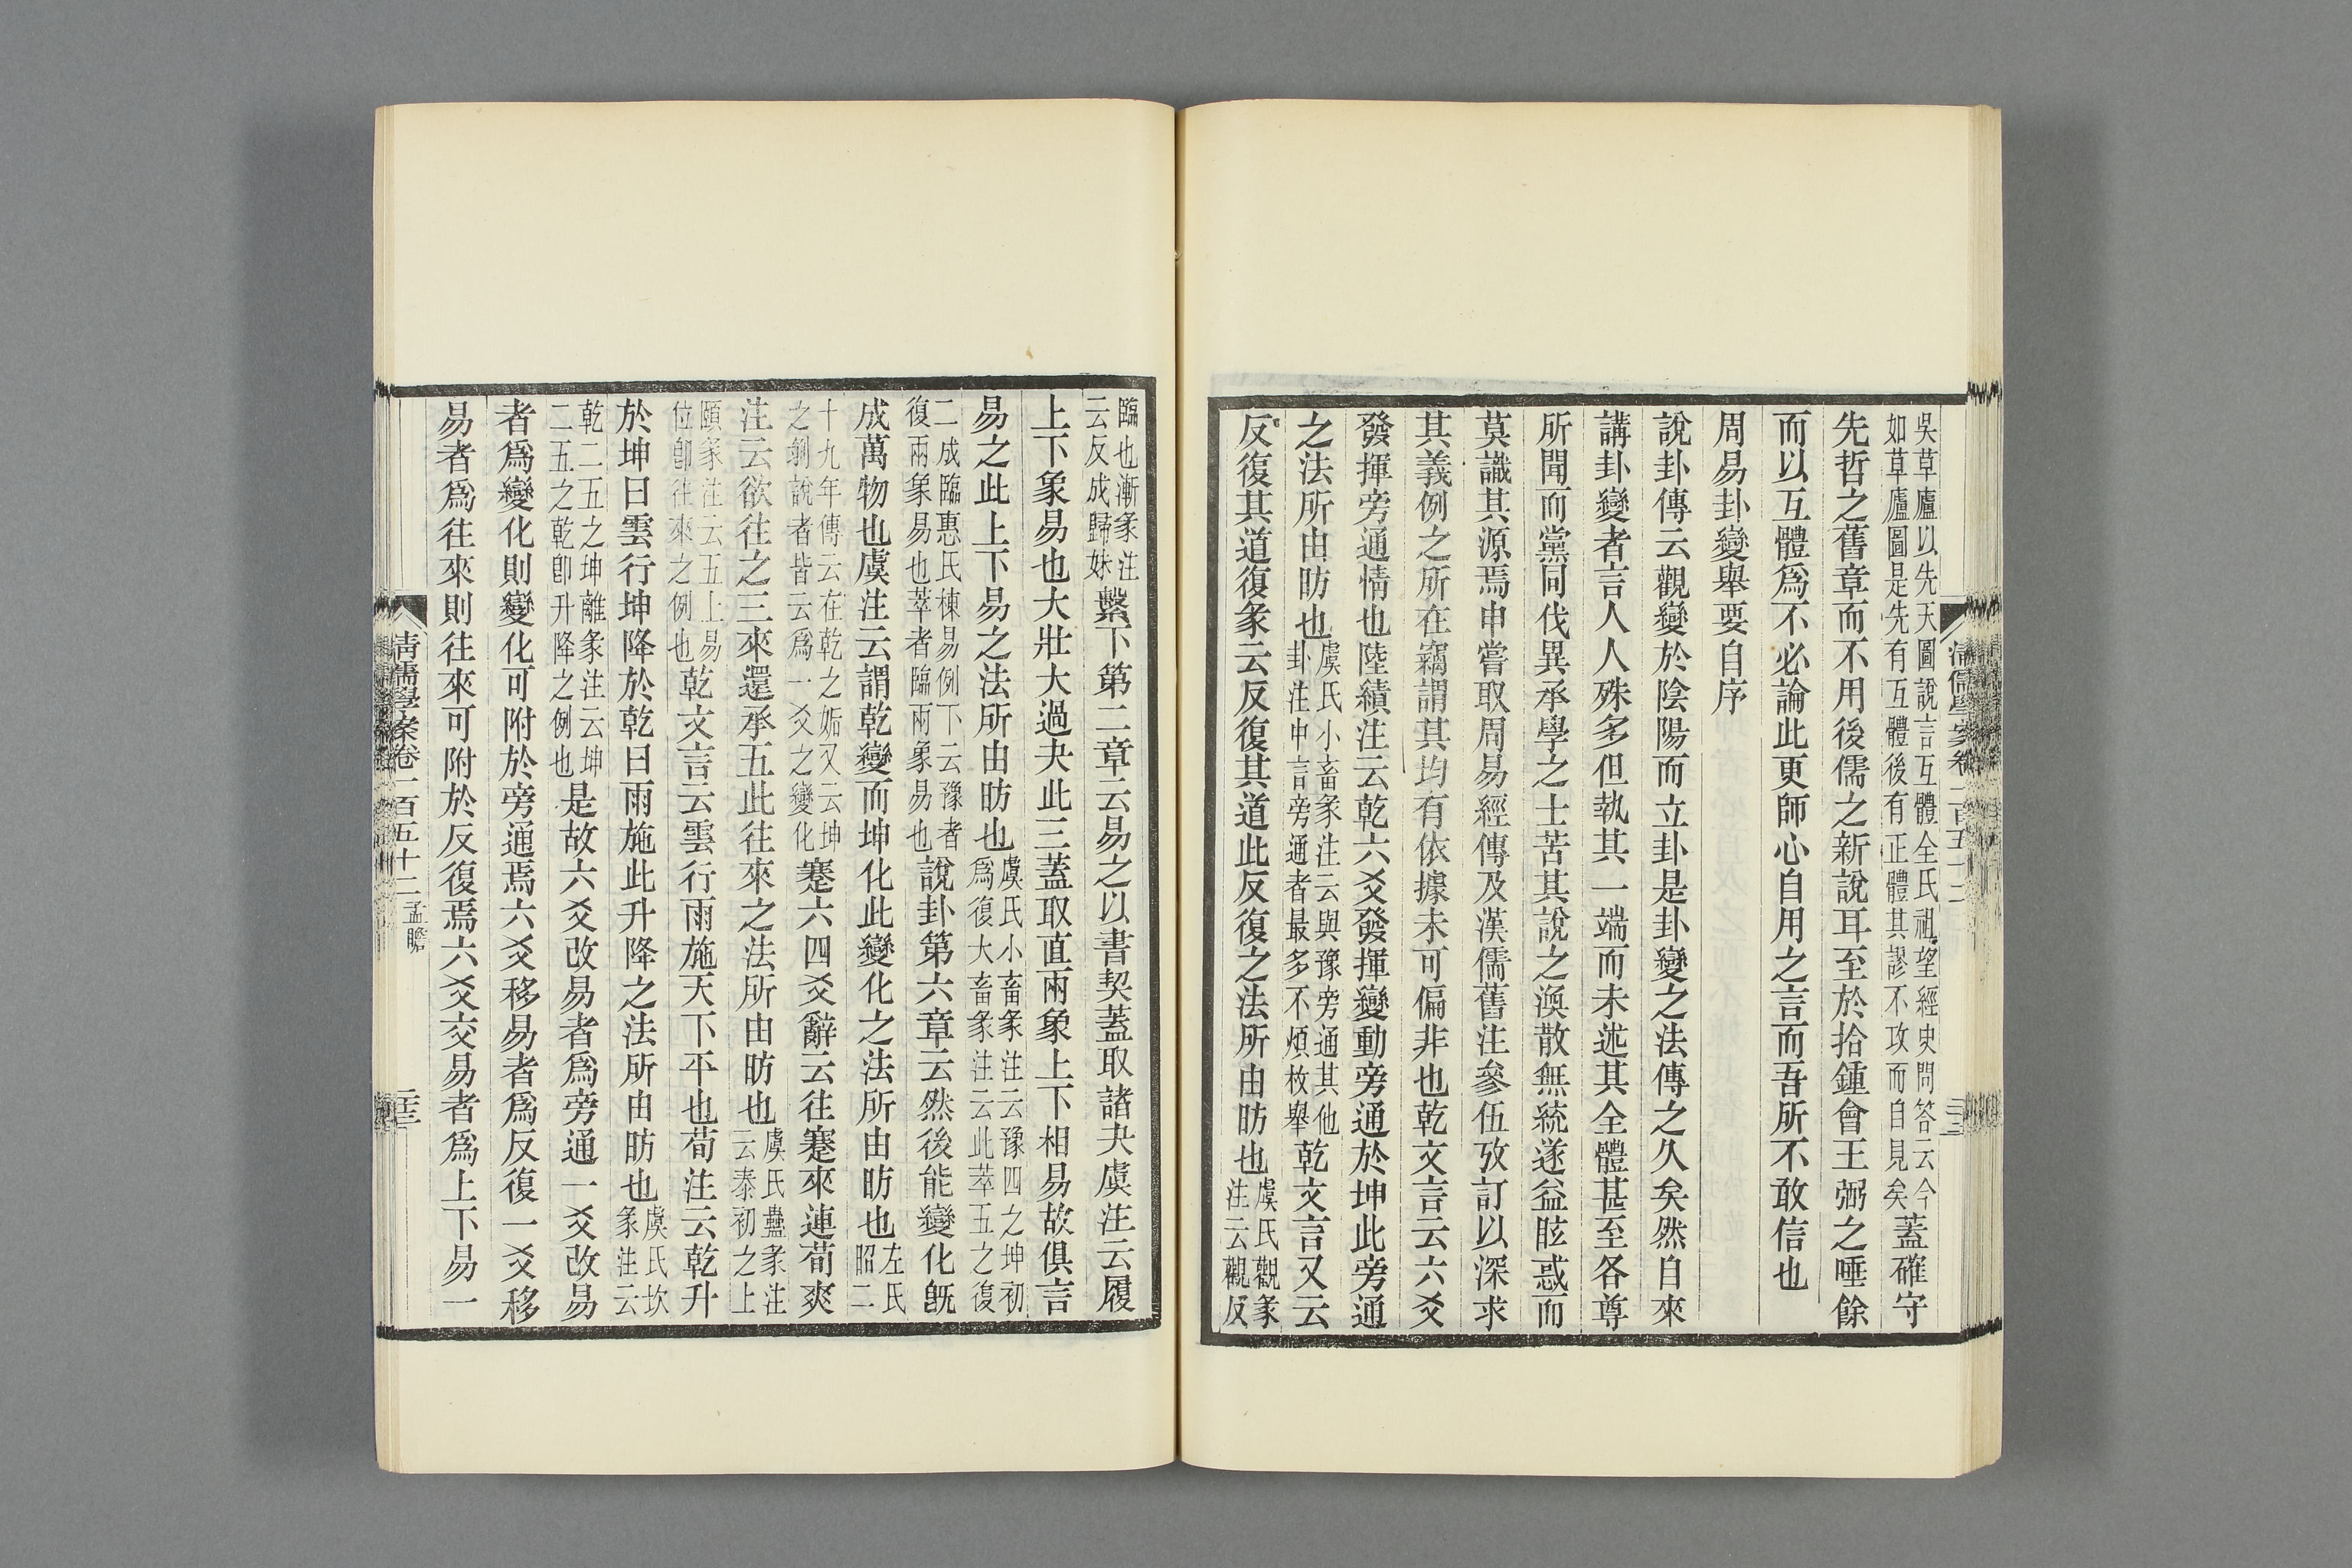 吳草廬以先天圖說言互體全氏祖望經史問答云今
如草廬圖是先有互體後有正體其謬不攻而自見矣
蓋確守
先哲之舊章而不用後儒之新說耳至於拾鍾會王弼之唾餘
而以互體爲不必論此更師心自用之言而吾所不敢信也
周易卦變舉要自序
說卦傳云觀變於陰陽而立卦是卦變之法傳之久矣然自來
講卦變者言人人殊多但執其一端而未述其全體甚至各尊
所聞而黨同伐異承學之士苦其說之渙散無統遂益眩惑而
莫識其源焉申嘗取周易經傳及漢儒舊注參伍攷訂以深求
其義例之所在竊謂其均有依據未可偏非也乾文言云六爻
發揮旁通情也陸績注云乾六爻發揮變動旁通於坤此旁通
之法所由昉也
虞氏小畜彖注云與豫旁通其他
卦注中言旁通者最多不煩枚舉
乾文言又云
反復其道復彖云反復其道此反復之法所由昉也
虞氏觀彖
注云觀反
臨也漸彖注
云反成歸妹
繫下第二章云易之以書契蓋取諸夬虞注云履
上下象易也大壯大過夬此三蓋取直兩象上下相易故俱言
易之此上下易之法所由昉也
虞氏小畜彖注云豫四之坤初
爲復大畜彖注云此萃五之復
二成臨惠氏棟易例下云豫者
復兩象易也萃者臨兩象易也
說卦第六章云然後能變化旣
成萬物也虞注云謂乾變而坤化此變化之法所由昉也
左氏
昭二
十九年傳云在乾之姤又云坤
之剝說者皆云爲一爻之變化
蹇六四爻辭云往蹇來連荀爽
注云欲往之三來還承五此往來之法所由昉也
虞氏蠱彖注
云泰初之上
頤彖注云五上易
位卽往來之例也
乾文言云雲行雨施天下平也荀注云乾升
於坤曰雲行坤降於乾曰雨施此升降之法所由昉也
虞氏坎
彖注云
乾二五之坤離彖注云坤
二五之乾卽升降之例也
是故六爻改易者爲旁通一爻改易
者爲變化則變化可附於旁通焉六爻移易者爲反復一爻移
易者爲往來則往來可附於反復焉六爻交易者爲上下易一
清儒學案卷一百五十二
孟瞻